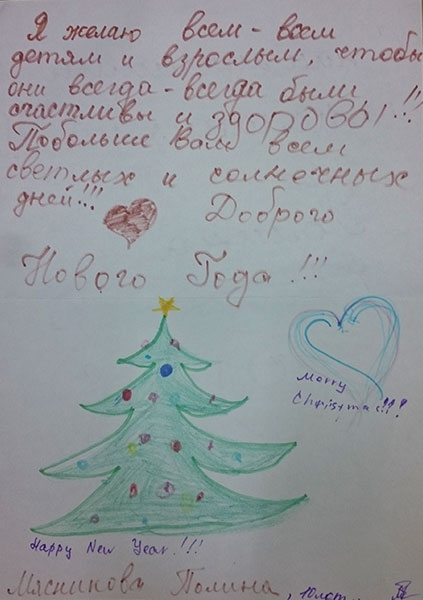 Я желаю всем-всем
детям и взрослым, чтобы
они всегда-всегда были
счастливы и здоровы!!!
Побольше Вам всем
светлых и солнечных
дней!!!
Доброго
Нового Года!!!
Morry
Christmac!!!
Happy New Year!!!
Мясникова Полина, 10 лет,